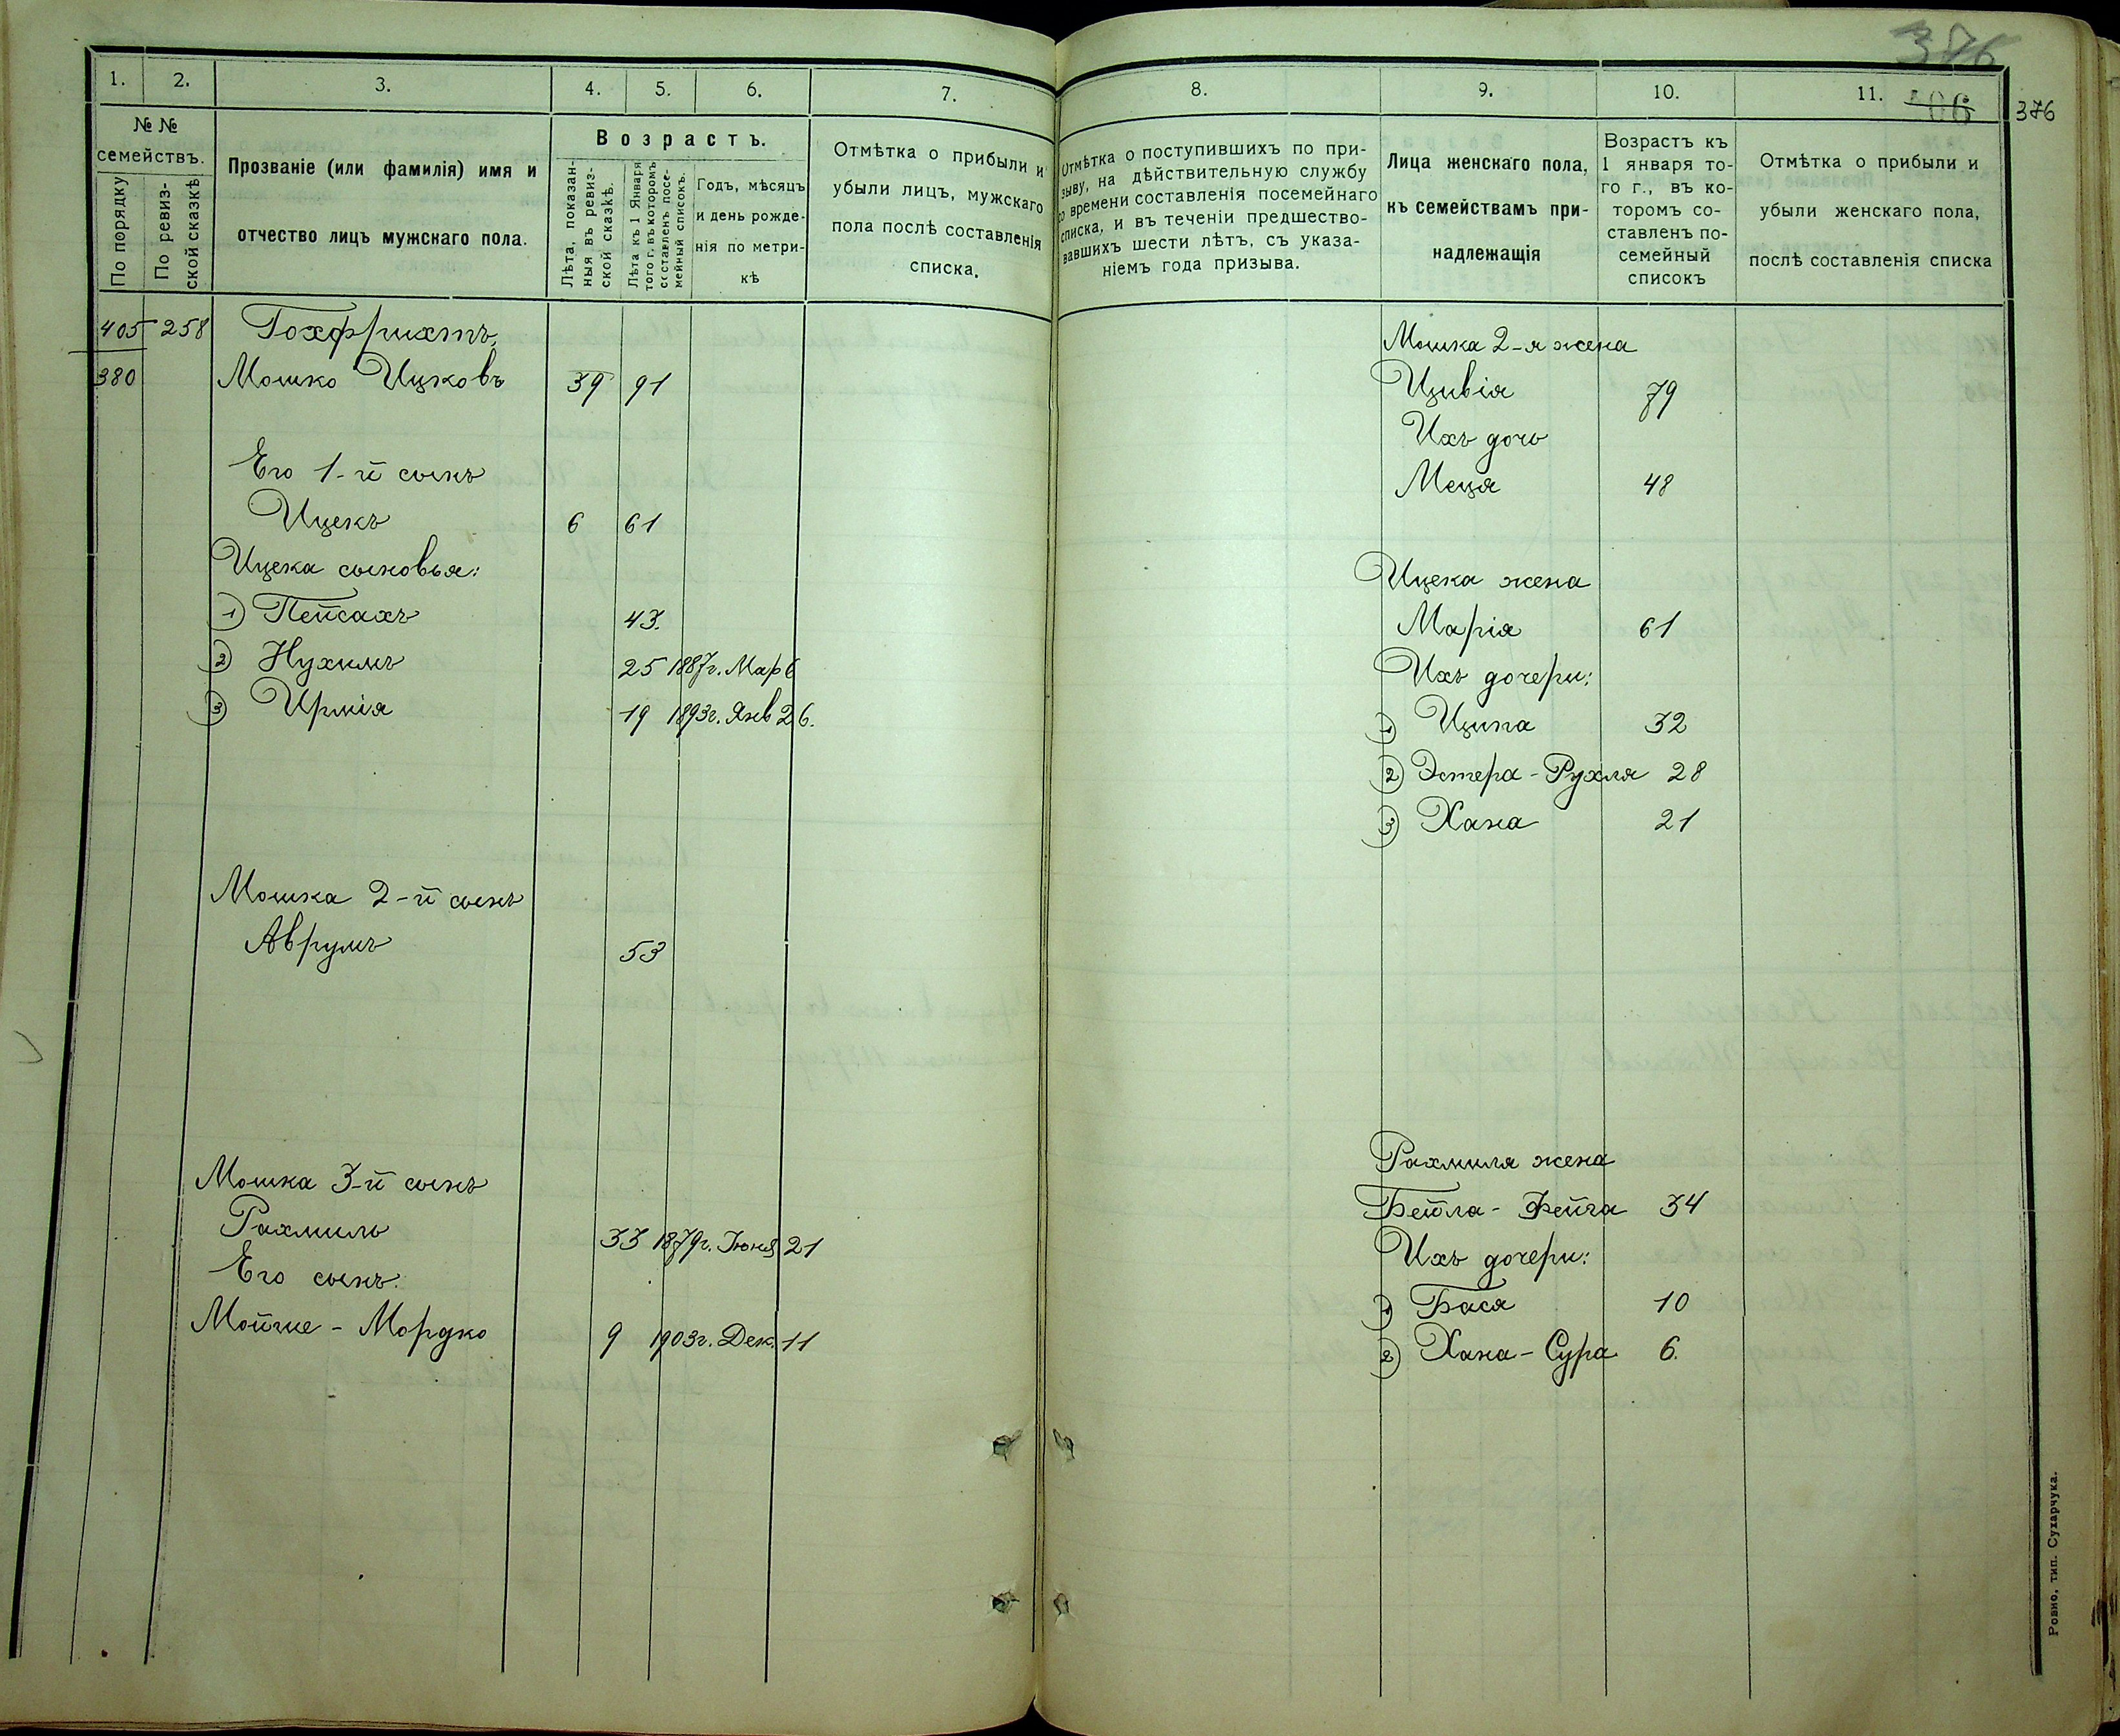 376
1. 2. 3. 4. 5. 6. 7.
№ № семействъ.
По порядку
По ревиз-
ской сказкѣ
Прозваніе (или фамилія) имя и
отчество лицъ мужскаго пола.
Возрастъ.
Лѣта, показан-
ныя въ ревиз-
ской сказкѣ.
Лѣта къ 1 Января
того г. въ которомъ
составленъ посе-
мейный списокъ.
Годъ, мѣсяцъ
и день рожде-
нія по метри-
кѣ
Отмѣтка о прибыли и
убыли лицъ, мужскаго
пола послѣ составленія
списка.
405 258 Гохфрихтъ
380 Мошко Ицковъ 39 91
Его 1-й сынъ
Ицекъ 6 61
Ицека сыновья:
1) Пейсахъ 43.
2) Нухимъ 25 1887г. Мар 6
3) Ирмія 19 1893г. Янв 26.
Мошка 2-й сынъ
Аврумъ 53
Мошка 3-й сынъ
Рахмиль 33 1879г. Іюня 21
Его сынъ:
Мойше-Мордко 9 1903г. Дек. 11
8. 9. 10. 11. 406 376
Отмѣтка о поступившихъ по при-
зыву, на дѣйствительную службу
со времени составленія посемейнаго
списка, и въ теченіи предшество-
вавшихъ шести лѣтъ, съ указа-
ніемъ года призыва.
Лица женскаго пола,
къ семействамъ при-
надлежащія
Возрастъ къ
1 января то-
го г., въ ко-
торомъ со-
ставленъ по-
семейный
списокъ
Отмѣтка о прибыли и
убыли женскаго пола,
послѣ составленія списка
Мошка 2-я жена
Цивія 79
Ихъ дочь
Меця 48
Ицека жена
Марія 61
Ихъ дочери:
1) Ципа 32
2) Эстера-Рухля 28
3) Хана 21
Рахмиля жена
Бейла-Фейга 34
Ихъ дочери:
1) Бася 10
2) Хана-Сура 6.
Ровно, тип. Сухарчука.